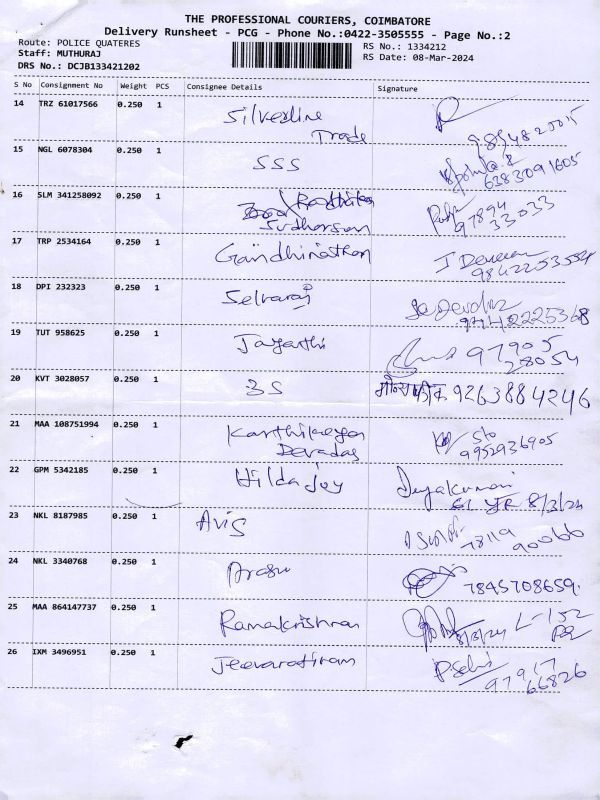 THE PROFESSIONAL COURIERS, COIMBATORE
Delivery Runsheet - PCG - Phone No.:0422-3505555 - Page No.:2
Route: POLICE QUATERES
RS No.: 1334212
Staff: MUTHURAJ
RS Date: 08-Mar-2024
DRS No.: DCJB133421202
S No Consignment No Weight PCS Consignee Details Signature
14 TRZ 61017566 0.250 1 Silverline
Trade
15 NGL 6078304 0.250 1 SSS
6383091605
16 SLM 341258092 0.250 1
Sudharsan
97894
33033
17 TRP 2534164 0.250 1 Gandhinathan J
9842253554
18 DPI 232323 0.250 1 Selvaraj
19 TUT 958625 0.250 1 Jayanthi 97905
28054
20 KVT 3028057 0.250 1 3S 9263884246
21 MAA 108751994 0.250 1 Karthikeyan S/o
Devadas 9952936905
22 GPM 5342185 0.250 1 Hilda joy Jeyakumari
8/3/24
23 NKL 8187985 0.250 1 Avis
78119
90066
24 NKL 3340768 0.250 1 Arasu 7845708659.
25 MAA 864147737 0.250 1 Ramakrishnan L-152
8/3/24
26 IXM 3496951 0.250 1 Jeevarathinam P Selvi
97917
66826